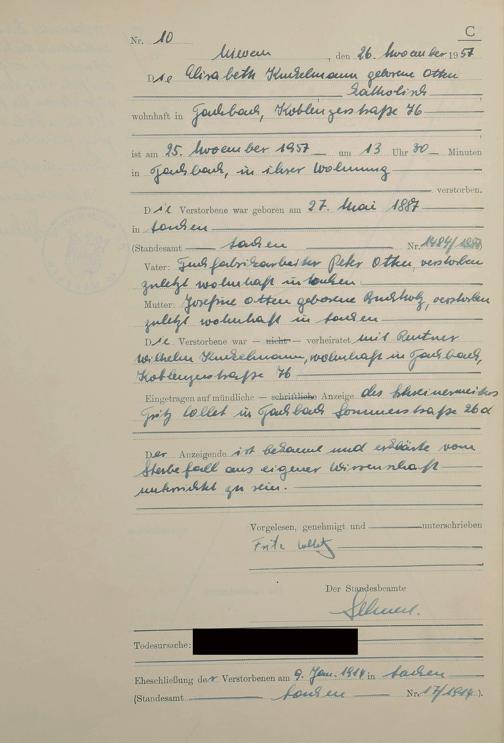 C
Nr. 10
Mieven, den 26. November 1957
Die Elisabeth Kunkelmann geborene Otten
katholisch
wohnhaft in Fachbach, Koblenzerstraße 76
ist am 25. November 1957 um 13 Uhr 30 Minuten
in Fachbach, in ihrer Wohnung
verstorben.
Die Verstorbene war geboren am 27. Mai 1887
in Aachen
(Standesamt Aachen Nr. 1484/1887
Vater: Tuchfabrikarbeiter Peter Otten, verstorben
zuletzt wohnhaft in Aachen
Mutter: Josefine Otten geborene Buchholz, verstorben
zuletzt wohnhaft in Aachen
Die Verstorbene war — nicht — verheiratet mit Rentner
Wilhelm Kunkelmann, wohnhaft in Fachbach,
Koblenzerstraße 76
Eingetragen auf mündliche — schriftliche Anzeige des Schreinermeisters
Fritz in Fachbach Sommerstraße 26a
Der Anzeigende ist bekannt und erklärte vom
Sterbefall aus eigener Wissenschaft
unterrichtet zu sein.
Vorgelesen, genehmigt und unterschrieben
Fritz
Der Standesbeamte
Todesursache:
Eheschließung der Verstorbenen am 9. Jan. 1914 in Aachen
(Standesamt Aachen Nr. 17/1914).